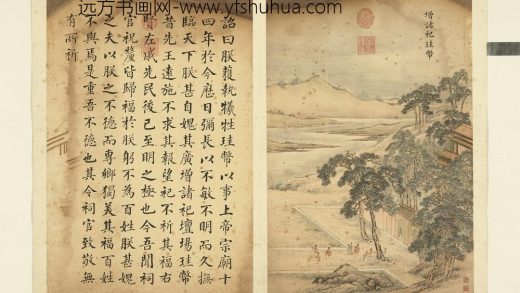 远方书画网-www.yfshuhua.com
增諸祀珪幣
詔曰朕獲執犧牲珪幣以事上帝宗廟十
四年於今歷日彌長以不敏不明而久撫
臨天下朕甚自媿其廣增諸祀壇場珪幣
昔先王遠施不求其報望祀不祈其福右
賢左戚先民後己至明之極也今吾聞祠
官祝釐皆歸福於朕躬不為百姓朕甚媿
之夫以朕之不德而專鄉獨美其福百姓
不與焉是重吾不德也其令祠官致敬無
有所祈